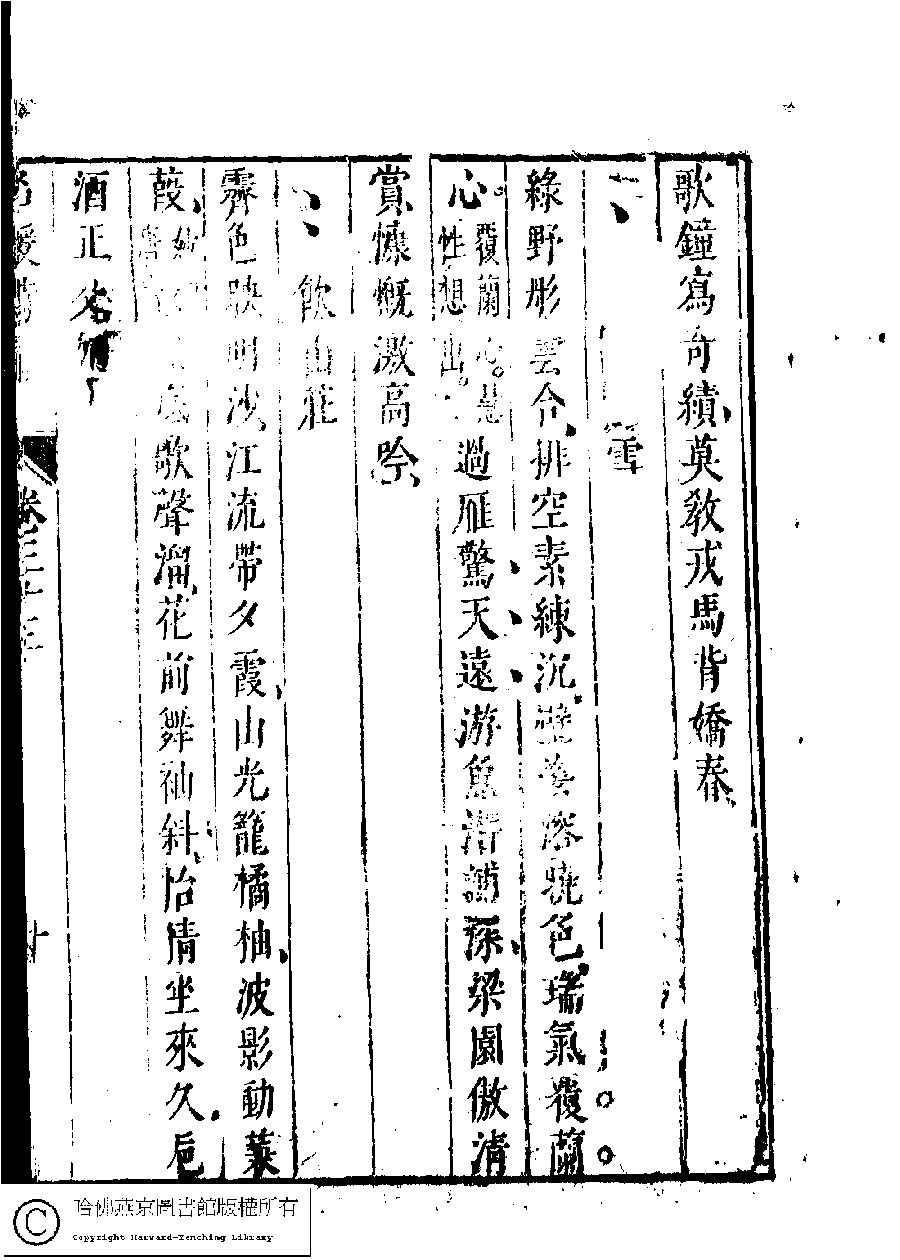 歌鐘寫奇績英教戎馬背嬌春
雪
綠野彤雲合排空素練沉 色瑞氣覆蘭
心覆蘭心慧
性想出
過雁驚天遠游魚潛 深梁園倣清
賞慷慨激高吟
飲山莊
霽色映明沙江流帶夕霞山光籠橘柚波影動葉
葭 歌聲溜花前舞袖斜怡情坐來久
酒正
卷三十三
十
哈佛燕京圖書館版權所有
Copyright Harvard-Yenching Library